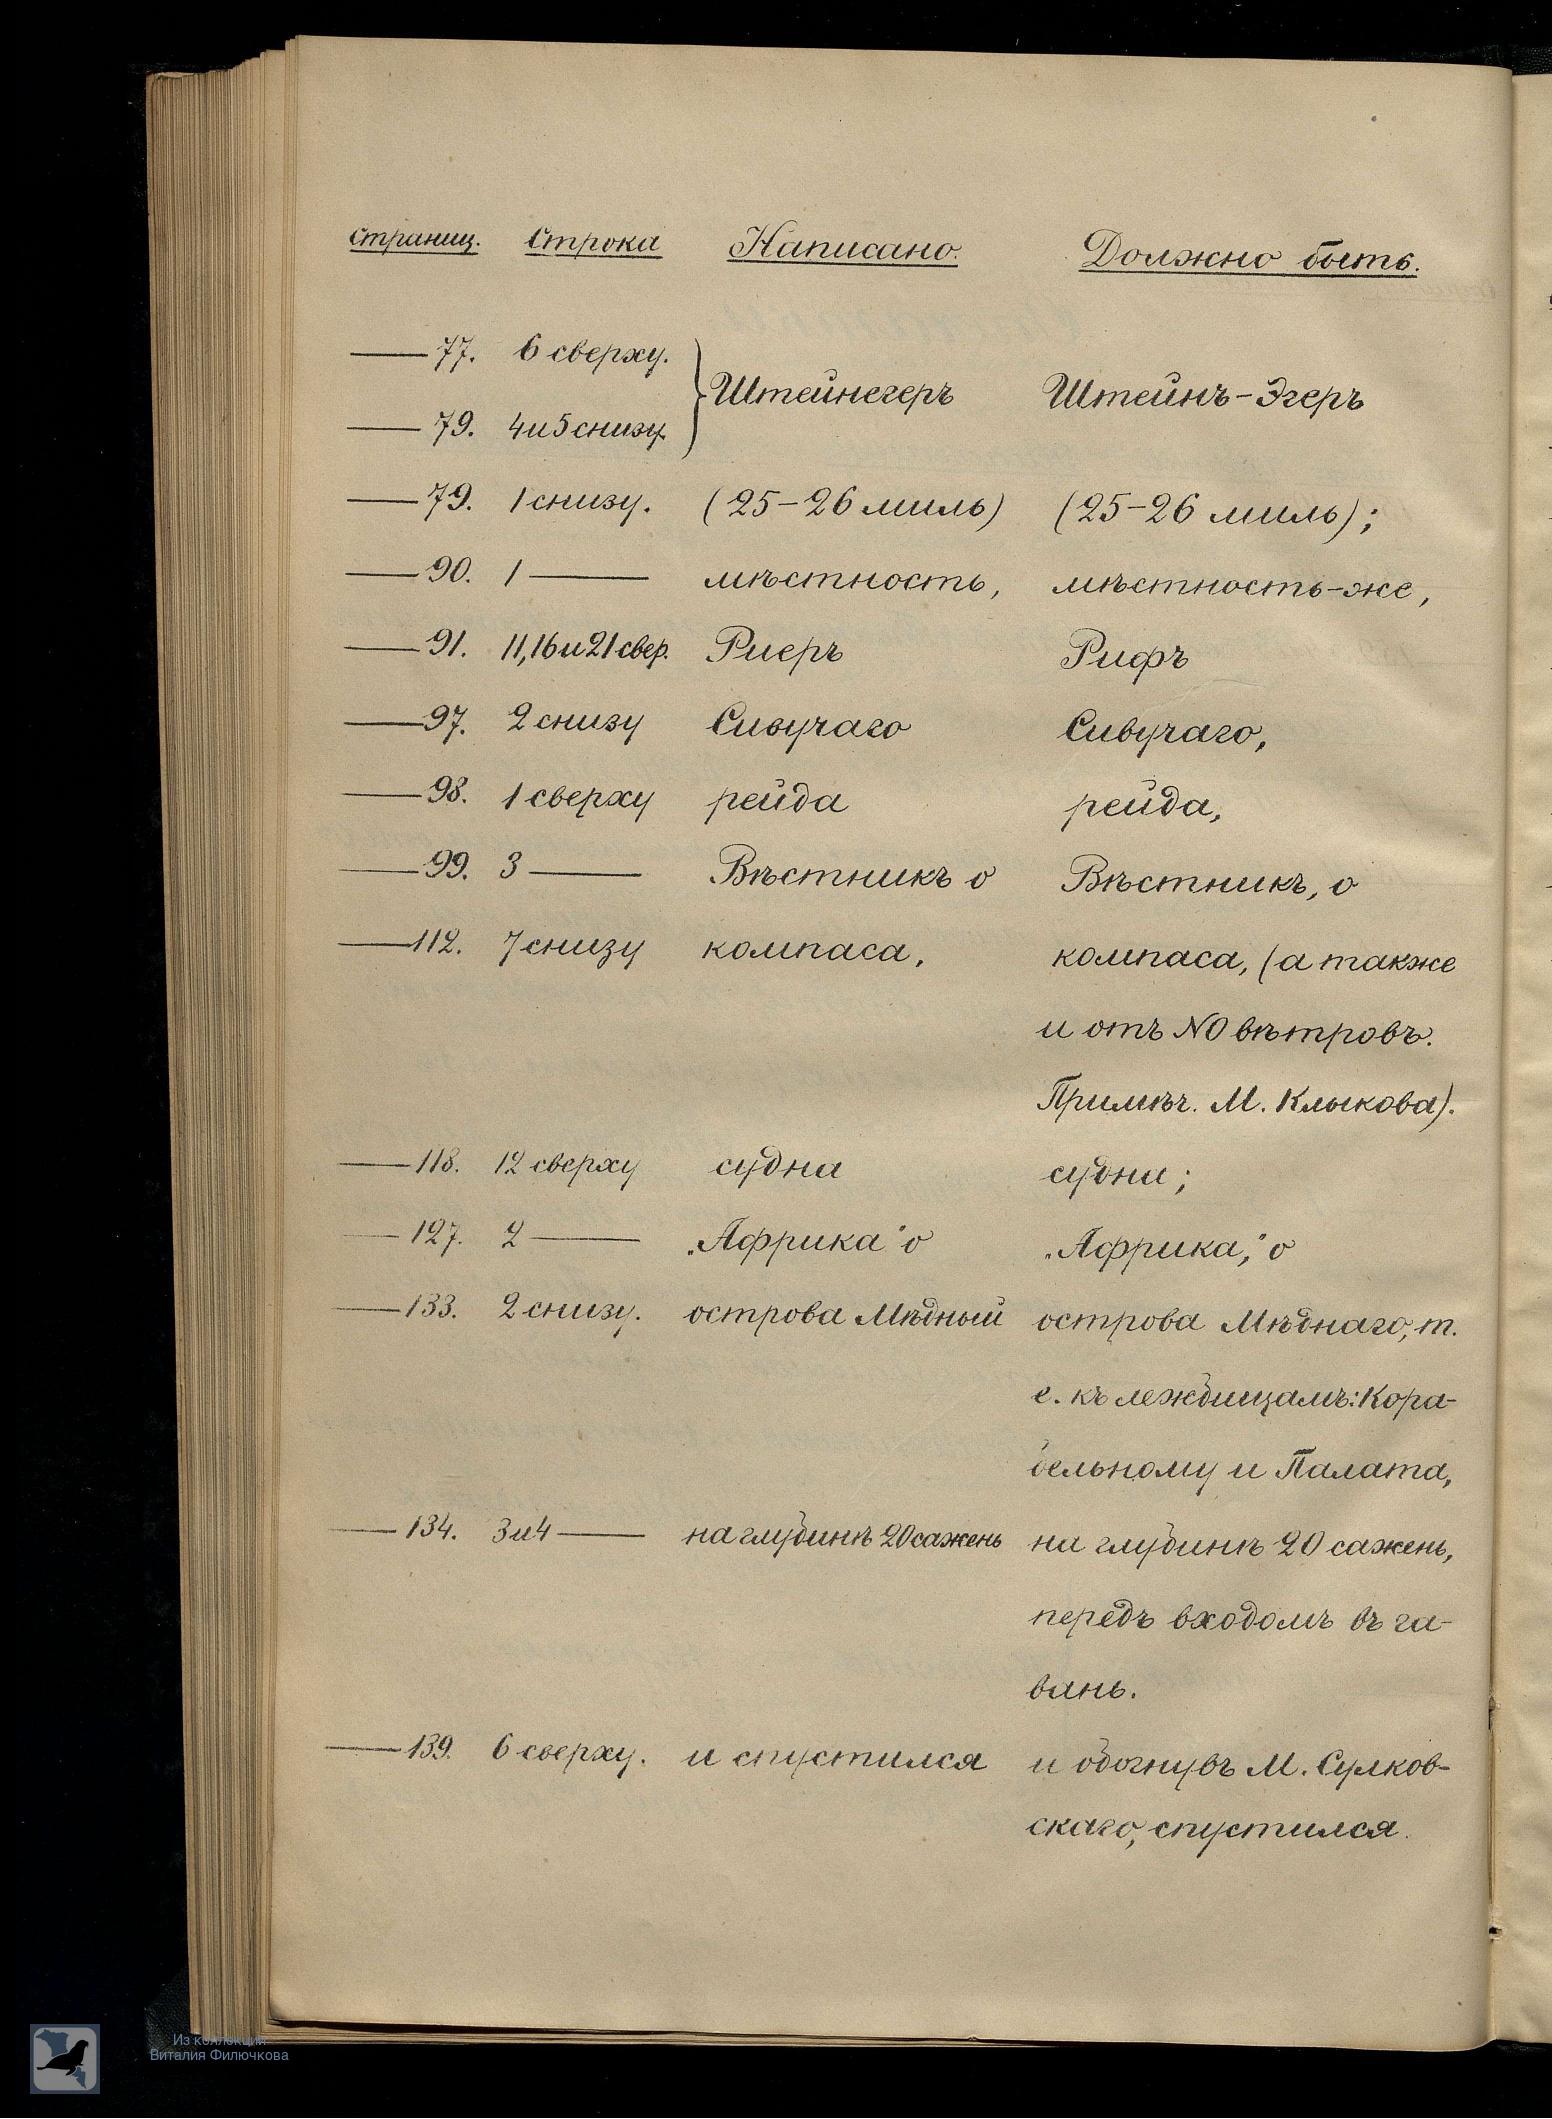 Страниц. Строка Написано. Должно быть.
— 77. 6 сверху.
Штейнегеръ Штейнъ-Эгеръ
— 79. 4 и 5 снизу.
— 79. 1 снизу. (25-26 миль) (25-26 миль);
— 90. 1 — мѣстность, мѣстность-же,
— 91. 11, 16 и 21 свер. Риеръ Рифъ
— 97. 2 снизу Сивучаго Сивучаго,
— 98. 1 сверху рейда рейда,
— 99. 3 — Вѣстникъ о Вѣстникъ, о
— 112. 7 снизу компаса, компаса, (а также
и отъ NO вѣтровъ.
Примѣч. М. Клыкова).
— 118. 12 сверху судна судна;
— 127. 2 — „Африка" о „Африка," о
— 133. 2 снизу. острова Мѣдный острова Мѣднаго, т.
е. къ лежбищамъ: Кора-
бельному и Палата,
— 134. 3 и 4 — на глубинѣ 20 сажень на глубинѣ 20 сажень,
передъ входомъ въ га-
вань.
— 139. 6 сверху. и спустился и обогнувъ М. Сулков-
скаго, спустился.
Из коллекции
Виталия Филючкова